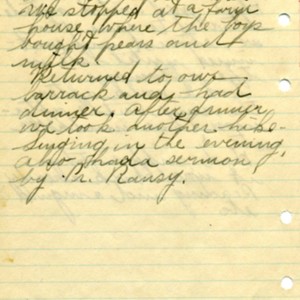 We stopped at a farm
house, where the boys
bought pears and
milk.
Returned to our
barrack and had
dinner. After dinner,
we took another hike.
Singing in the evening,
also had a sermon
by Pr. Ransy.